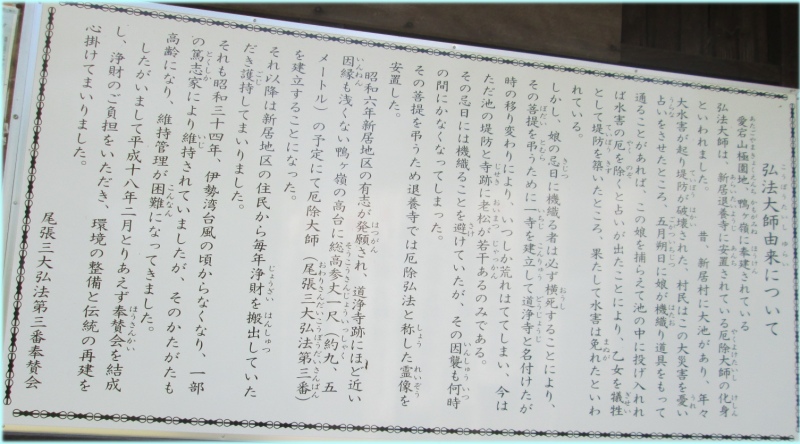 弘法大師由来について
愛宕山極園地、鴨ヶ嶺に奉建されている
弘法大師は、新居退養寺に安置されている厄除大師の化身
といわれました。 昔、新居村に大池があり、年々
大水害が起り堤防が破壊された、村民はこの大災害を憂い
占いをさせたところ、五月朔日に娘が機織り道具をもって
通ることがあれば、この娘を捕らえて池の中に投げ入れれ
ば水害の厄を除くと占いが出たことにより、乙女を犠牲
として堤防を築いたところ、果たして水害は免れたといわ
れている。
しかし、娘の忌日に機織る者は必ず横死することにより、
その菩提を弔うために一寺を建立して道浄寺と名付けたが
時の移り変わりにより、いつしか荒れはててしまい、今は
ただ池の堤防と寺跡に老松が若干あるのみである。
その忌日には機織ることを避けていたが、その因襲も何時
の間にかなくなってしまった。
その菩提を弔うため退養寺では厄除弘法と称した霊像を
安置した。
昭和六年新居地区の有志が発願され、道浄寺跡にほど近い
因縁も浅くない鴨ヶ嶺の高台に総高参丈一尺（約九、五
メートル）の予定にて厄除大師（尾張三大弘法第三番）
を建立することになった。
それ以降は新居地区の住民から毎年浄財を搬出していた
だき護持してまいりました。
それも昭和三十四年、伊勢湾台風の頃からなくなり、一部
の篤志家により維持されていましたが、そのかたがたも
高齢になり、維持管理が困難になってきました。
したがいまして平成十八年二月とりあえず奉賛会を結成
し、浄財のご負担をいただき、環境の整備と伝統の再建を
心掛けてまいりました。
尾張三大弘法第三番奉賛会